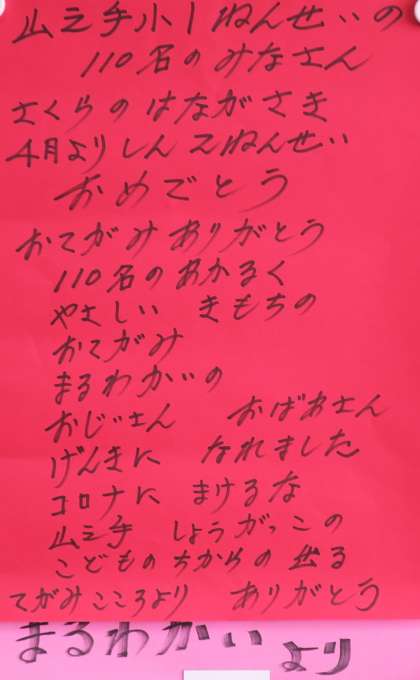 山之手小1ねんせいの
110名のみなさん
さくらのはながさき
4月よりしん2ねんせい
おめでとう
おてがみありがとう
110名のあかるく
やさしい きもちの
おてがみ
まるわかいの
おじいさん おばあさん
げんきに なれました
コロナに まけるな
山之手 しょうがっこの
こどものちからの出る
てがみこころより ありがとう
まるわかいより